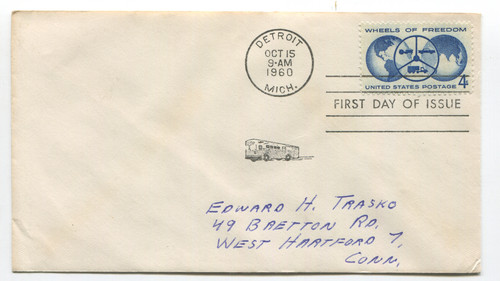 DETROIT
OCT 15
9-AM
1960
MICH.
WHEELS OF FREEDOM
UNITED STATES POSTAGE 4¢
FIRST DAY OF ISSUE
EDWARD H. TRASKO
49 BRETTON RD.
WEST HARTFORD 7,
CONN.